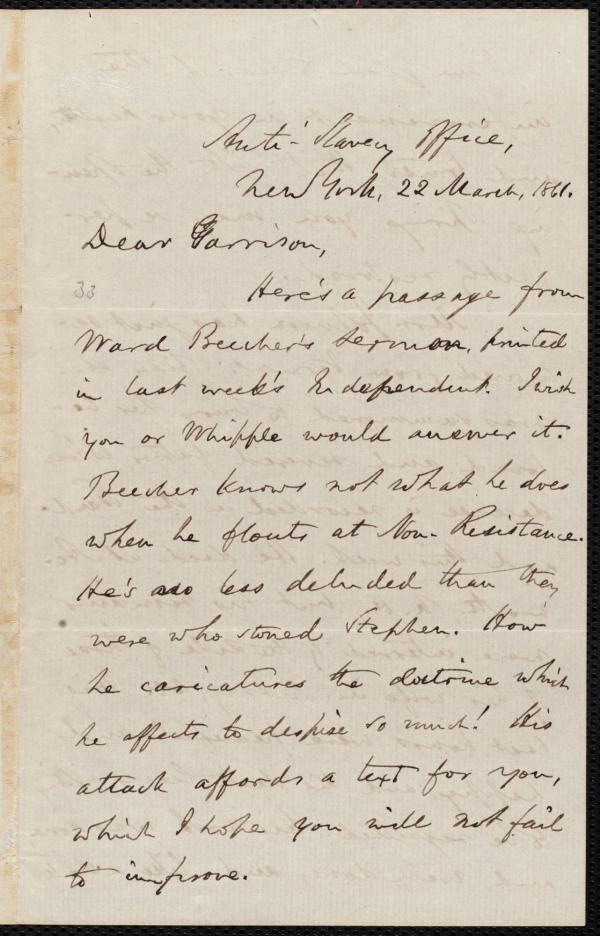 Anti-Slavery Office,
New York, 22 March, 1861.
Dear Garrison,
33
Here's a passage from
Ward Beecher's sermon, printed
in last week's Independent. I wish
you or Whipple would answer it.
Beecher knows not what he does
when he flouts at Non-Resistance.
He's no less deluded than they
were who stoned Stephen. How
he caricatures the doctrine which
he affects to despise so much! His
attack affords a text for you,
which I hope you will not fail
to improve.